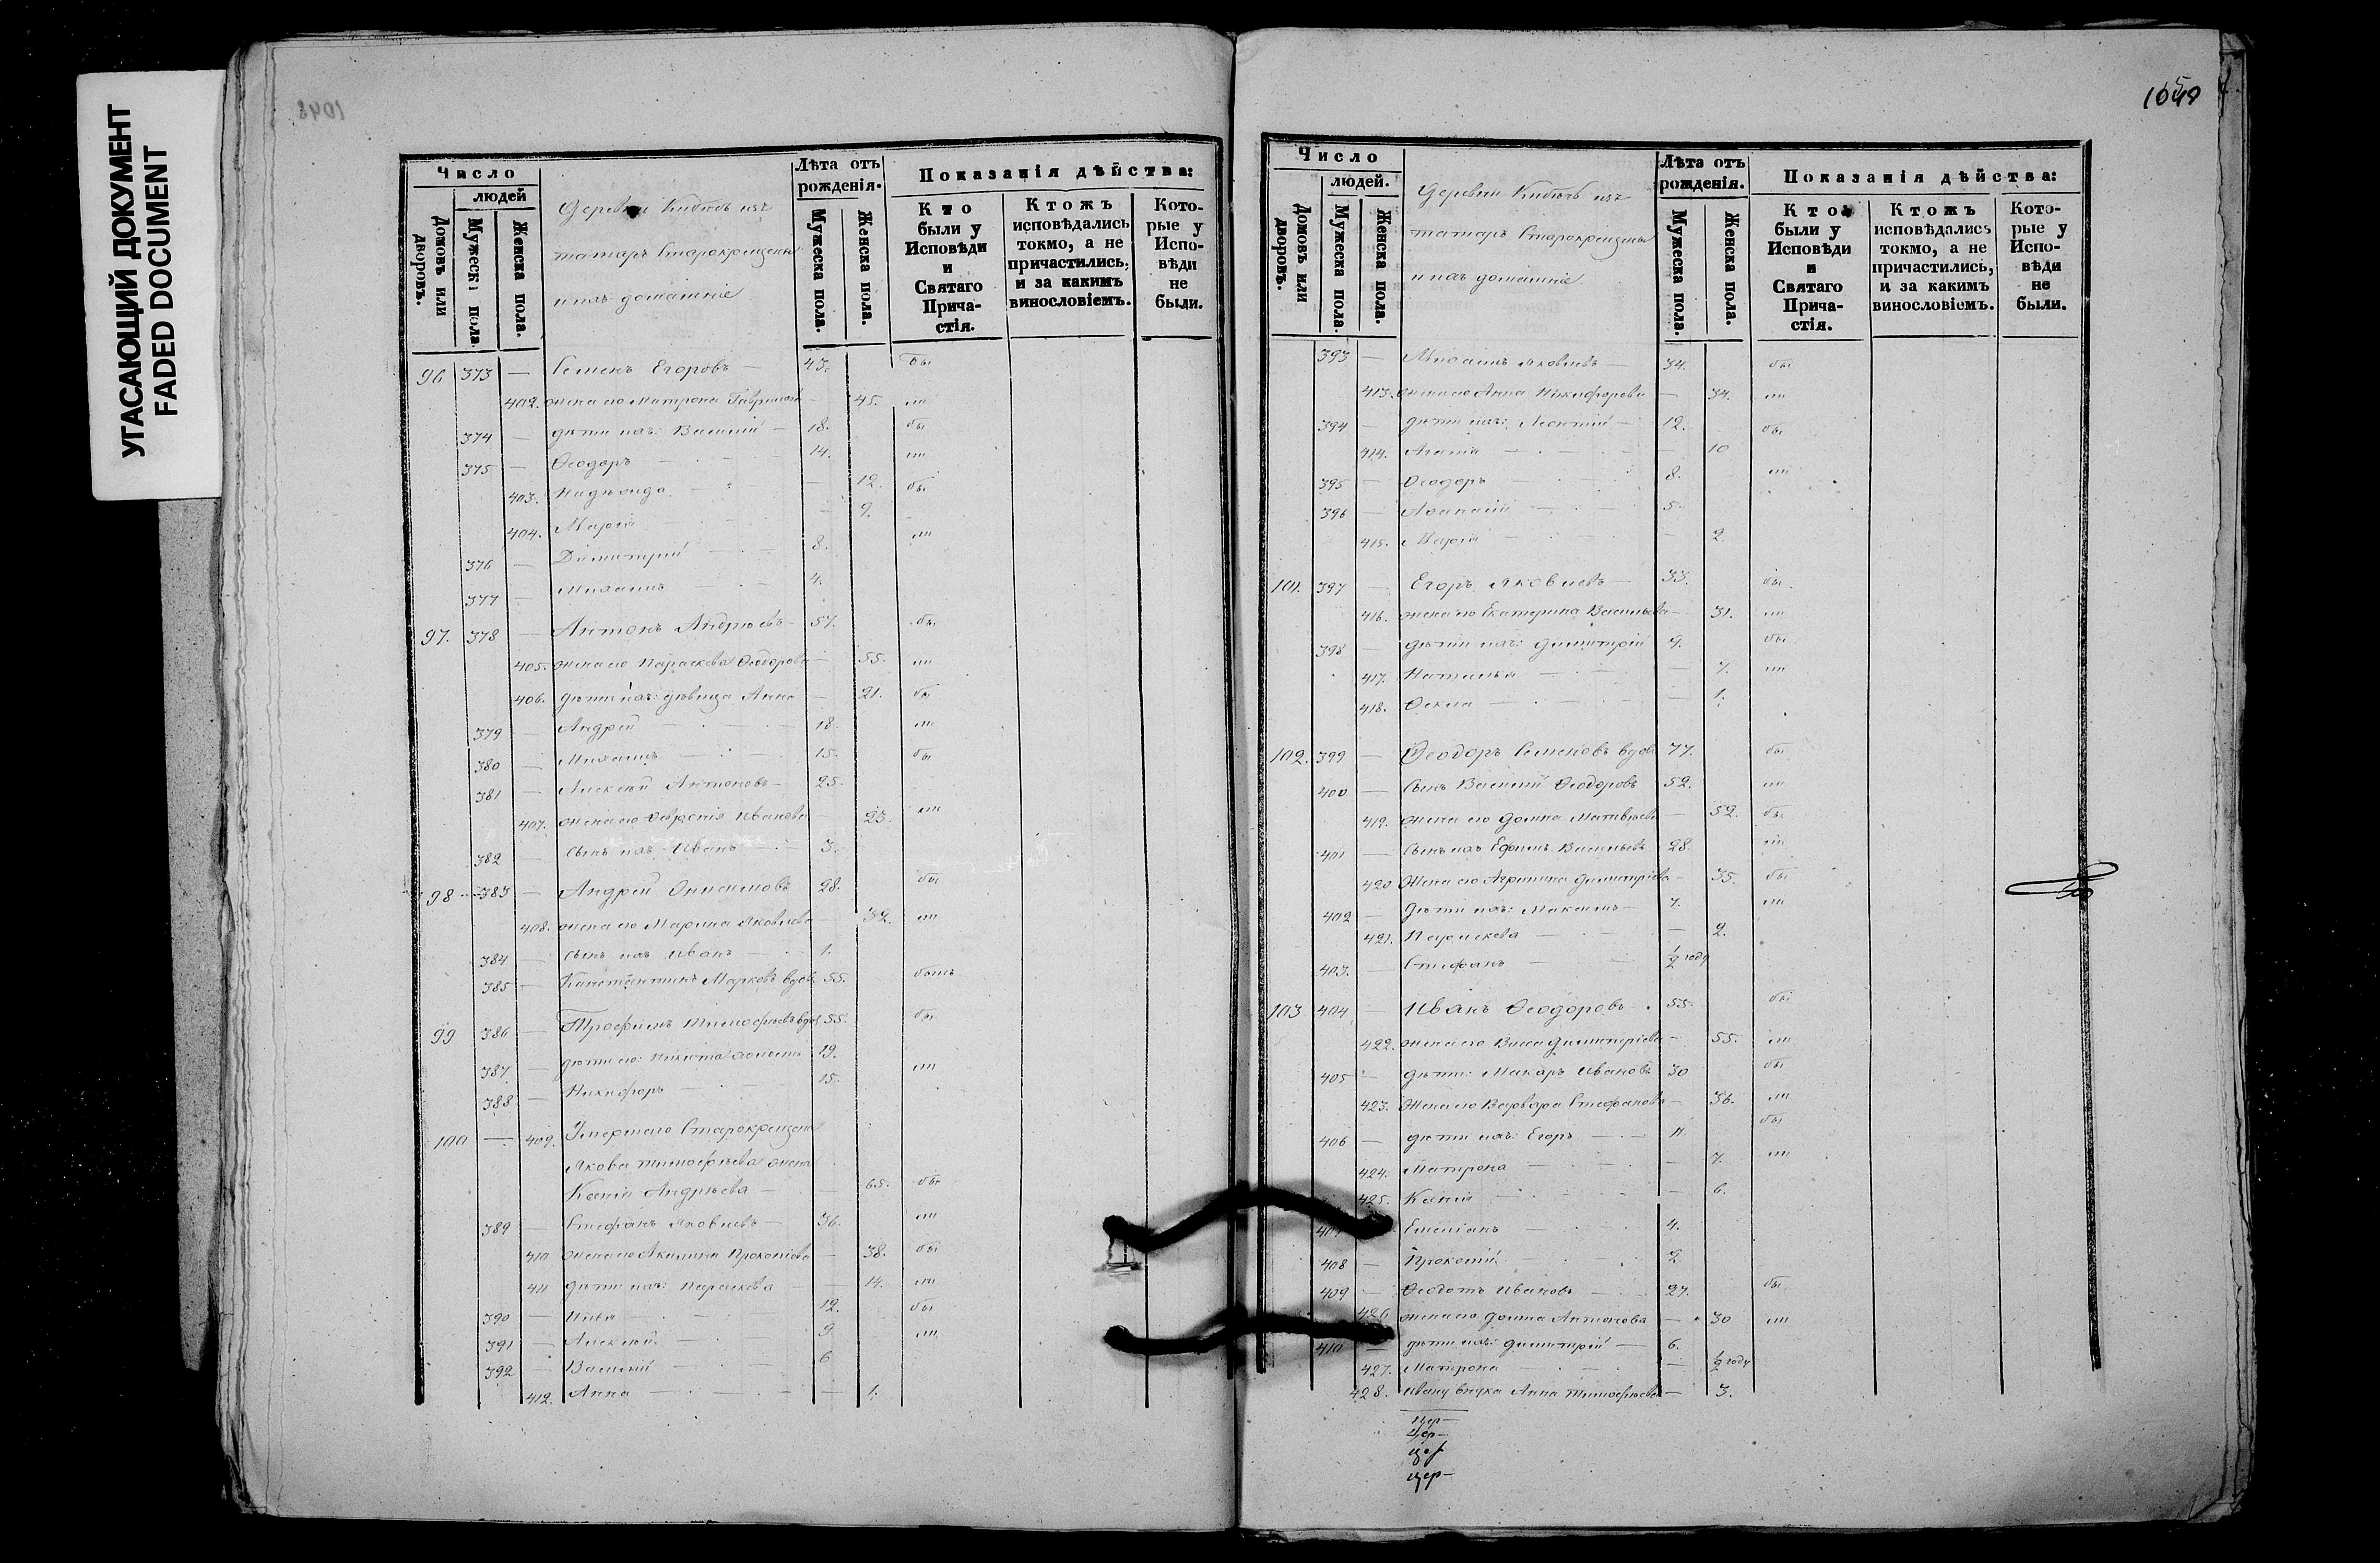 УГАСАЮЩИЙ ДОКУМЕНТ
FADED DOCUMENT
1048
Число
людей
Домовъ или дворовъ.
Мужеска пола.
Женска пола.
Деревни Кибѣчь изъ
татаръ Старокрещены
и ихъ домашніе
Лѣта отъ рожденія.
Мужеска пола.
Женска пола.
Показанія дѣйства:
Кто были у Исповѣди и Святаго Прича-стія.
Ктожъ исповѣдались токмо, а не причастились, и за какимъ винословіемъ.
Кото-рые у Испо-вѣди не были.
96 373 — Семенъ Егоровъ — 43. бы
402. жена его Матрона Гаврилова — 45. ли
374 — дѣти ихъ: Василій — 18. бы
375 — Ѳеодоръ — 14. ли
403. Надежда — 12. бы
404. Марія — 9. ли
376 — Димитрій — 8.
377 — Михаилъ — 4.
97. 378 — Антонъ Андреевъ — 57. бы
405. жена его Параскева Ѳеодорова — 55. ли
406. дѣти ихъ: дѣвица Анна — 21. бы
379 — Андрей — 18. ли
380 — Михаилъ — 15. бы
381 — Алексѣй Антоновъ — 25.
407. жена его Ѳевронія Иванова — 23. ли
382 — сынъ ихъ Иванъ — 3.
98 383 — Андрей Онисимовъ 28. бы
408. жена его Марина Яковлева — 32. ли
384 — сынъ ихъ Иванъ — 1.
385 — Константинъ Марковъ вдовъ 55. былъ
99 386 — Трофимъ Тимоѳеевъ вдов 55. бы
387 — дѣти его: Никита холостъ 19. ли
388 — Никифоръ — 15.
100 — 409. Умершаго Старокрещена
Якова Тимоѳеева жена
Ксенія Андреева — 65. бы
389 — Стефанъ Яковлевъ — 36. ли
410 жена его Акилина Прокопіева — 38. бы
411 дѣти ихъ: Параскева — 14. ли
390 — Илья — 12. бы
391 — Алексѣй — 9 ли
392 — Василій — 6
412. Анна — 1.
1049
Число
людей.
Домовъ или дворовъ.
Мужеска пола.
Женска пола.
Деревни Кибѣчь изъ
татаръ Старокрещены
и ихъ домашніе
Лѣта отъ рожденія.
Мужеска пола.
Женска пола.
Показанія дѣйства:
Кто были у Исповѣди и Святаго Прича-стія.
Ктожъ исповѣдались токмо, а не причастились, и за какимъ винословіемъ.
Кото-рые у Испо-вѣди не были.
393 — Михаилъ Яковлевъ — 34. бы
413. жена его Анна Никифорова — 34. ли
394 — дѣти ихъ: Леонтій — 12. бы
414. Агапія — 10
395 — Ѳеодоръ — 8. ли
396 — Аѳанасій — 5.
415. Марія — 2.
101. 397 — Егоръ Яковлевъ — 33. бы
416. жена его Екатерина Васильева — 31. ли
398 — дѣти ихъ: Димитрій 9. бы
417. Наталья — 7. ли
418. Ѳекла — 1.
102. 399 — Ѳеодоръ Семеновъ вдов 77. бы
400 — сынъ Василій Ѳеодоровъ 52. ли
419. жена его Домна Матвѣева — 52. бы
401 — сынъ ихъ Ефимъ Васильевъ 28. ли
420 Жена его Агрипина Димитріева — 35. бы
402 — дѣти ихъ: Максимъ — 7. ли
421. Параскева — 2.
403. — Стефанъ — 1/2 году
103 404 — Иванъ Ѳеодоровъ 55. бы
422. жена его Васса Димитріева — 55. ли
405 — дѣти: Макаръ Ивановъ 30 бы
423. Жена его Варвара Стефанова — 36. ли
406 — дѣти ихъ: Егоръ — 11. бы
424. Матрона — 7. ли
425. Ксенія — 6.
407 Емеліанъ — 4.
408 — Прокопій — 2.
409 — Ѳеодотъ Ивановъ — 27. бы
426. жена его Домна Антонова — 30 ли
410 — дѣти ихъ: Димитрій — 6.
427. Матрона — 1/2 году
428. Ивану внука Анна Тимоѳеева — 3.